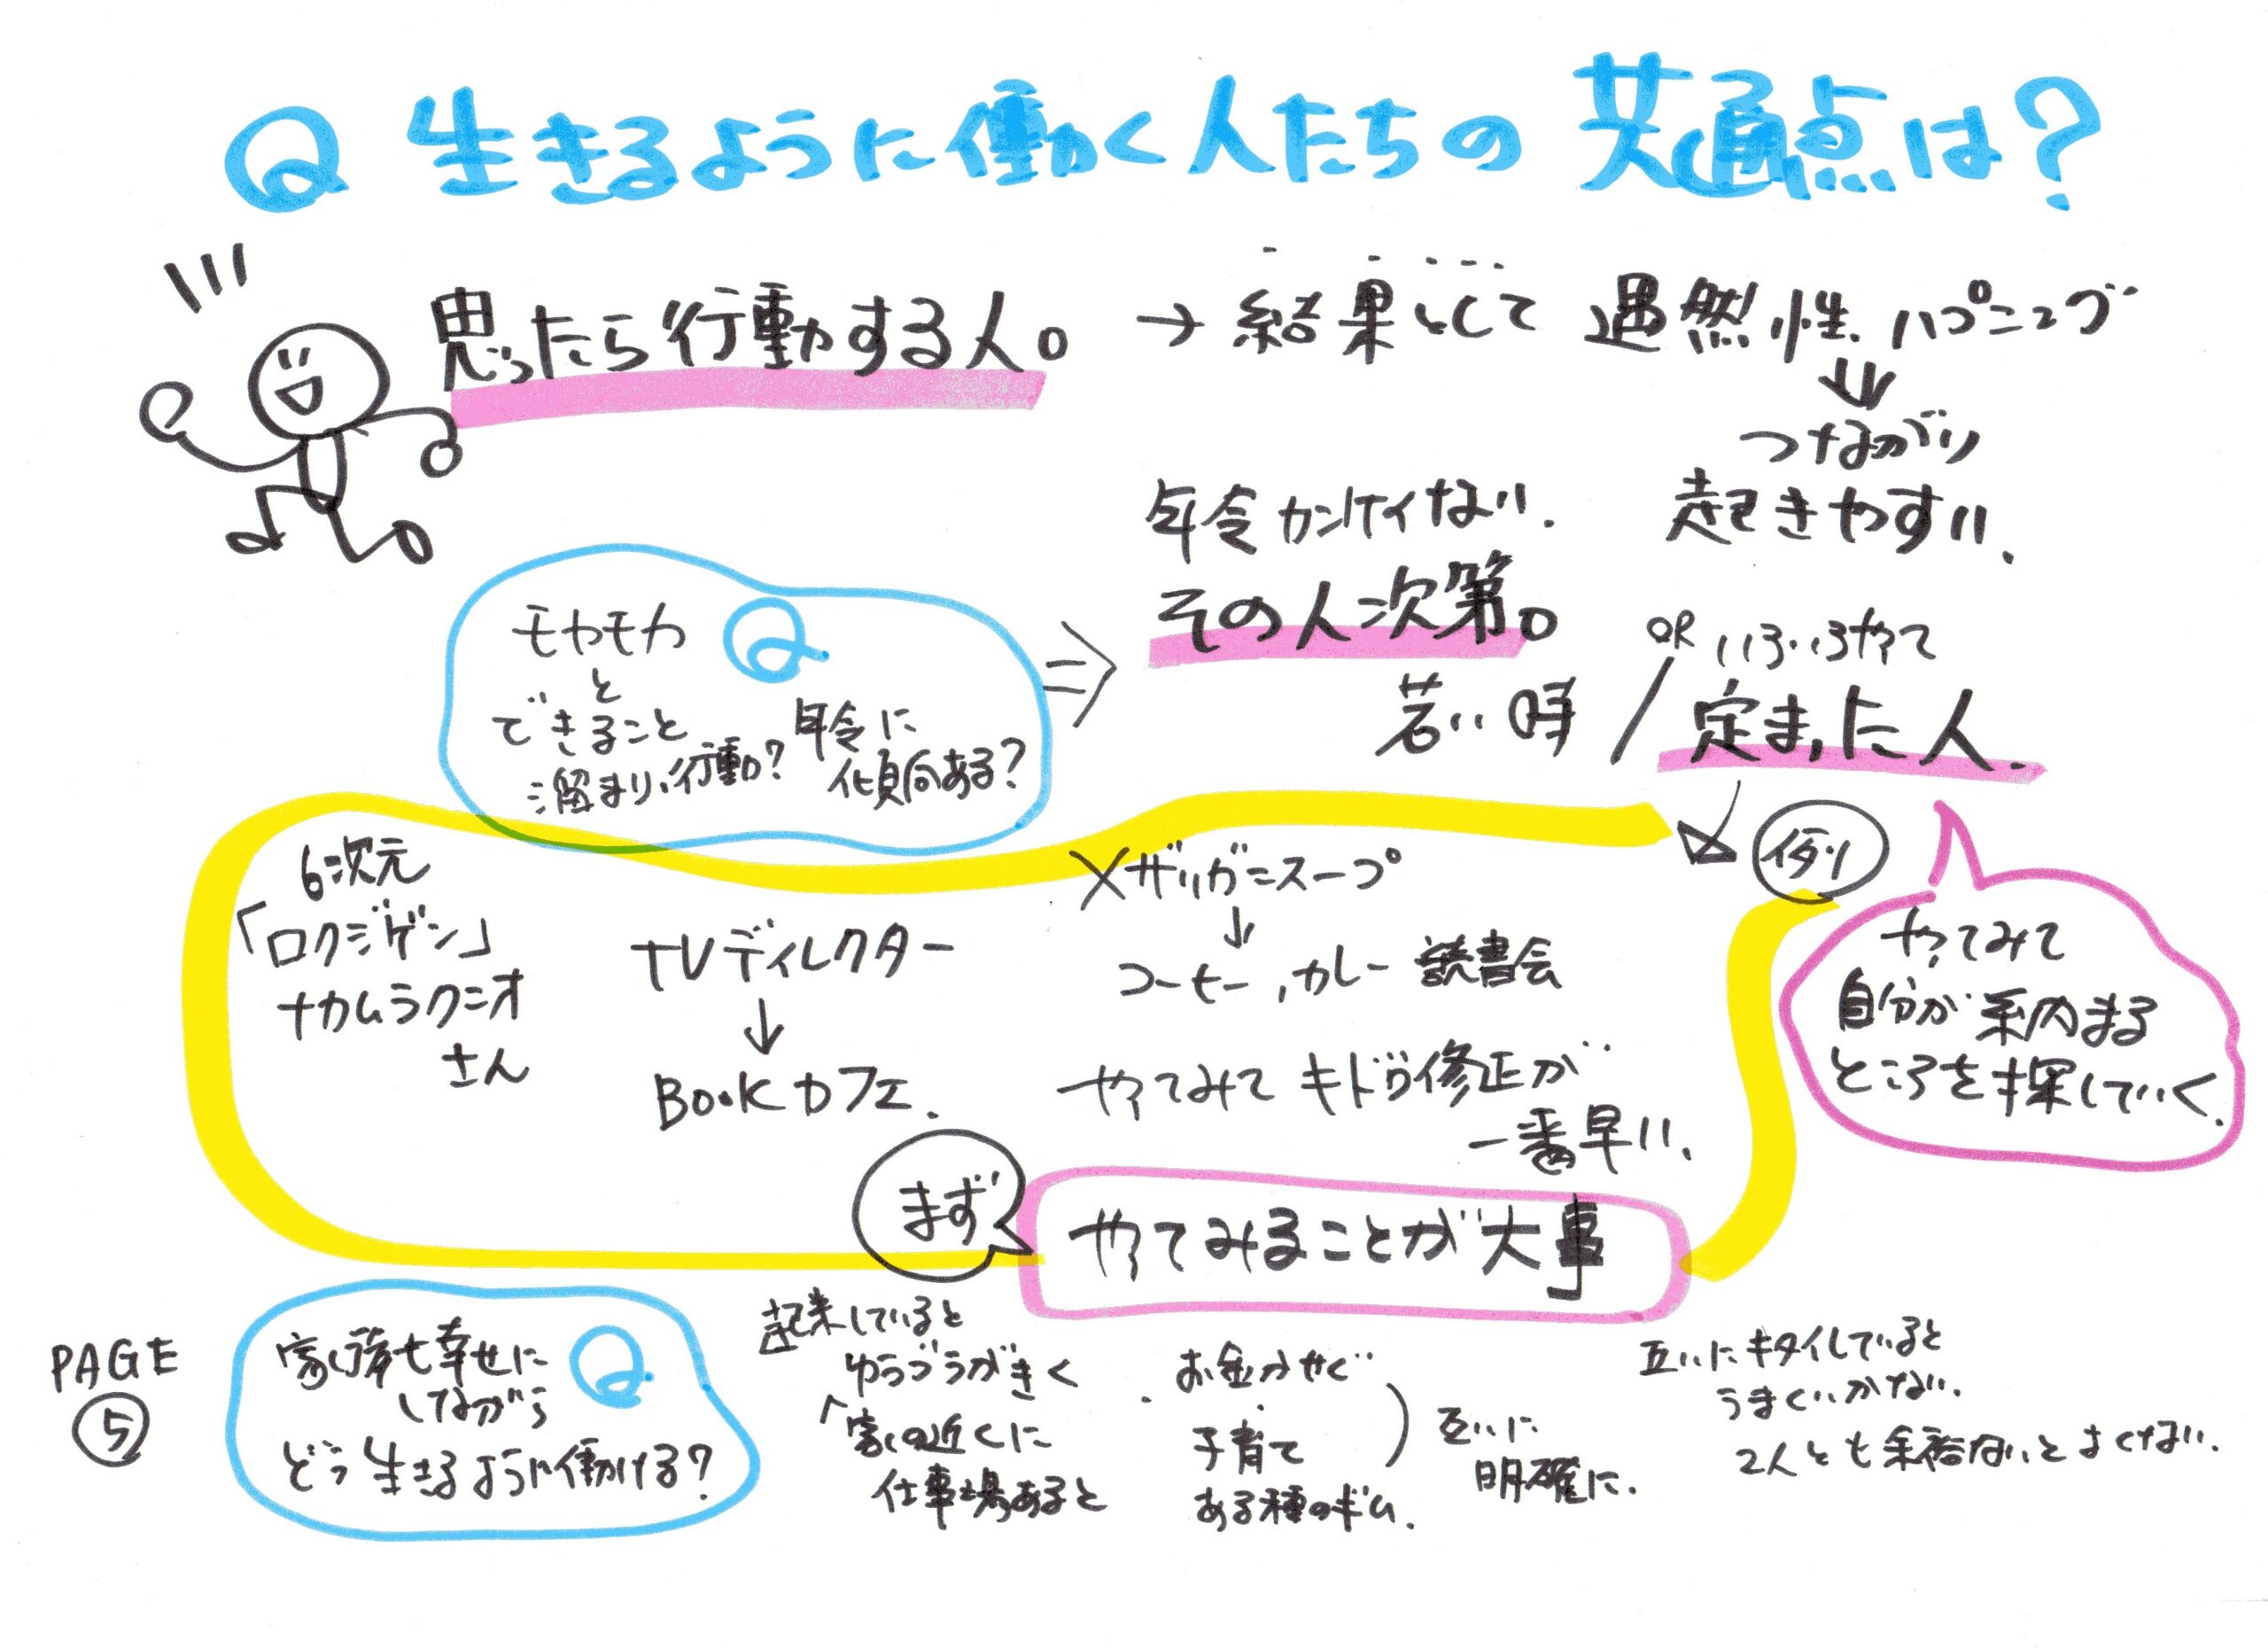 Q 生きるように働く人たちの共通点は?
思ったら行動する人。 → 結果として 偶然性、ハプニング
↓
つながり
起きやすい、
年令カンケイない、
その人次第。
若い時 / OR いろいろやって
定まった人、
Q
モヤモヤ
と
できること
溜まり、行動?
年令に
傾向ある?
例
やってみて
自分が納まる
ところを探していく、
6次元
「ロクジゲン」
ナカムラクニオ
さん
TVディレクター
↓
BOOKカフェ、
×ザリガニスープ
↓
コーヒー、カレー 読書会
やってみて キドウ修正が
一番早い、
まず
やってみることが大事
PAGE
⑤
Q
家族も幸せに
しながら
どう生きるように働ける?
起業していると
ゆうづうがきく
「家の近くに
仕事場あると
・お金かせぐ
・子育て
ある種のギム、
互いに
明確に、
互いにキタイしていると
うまくいかない、
2人とも余裕ないとよくない、